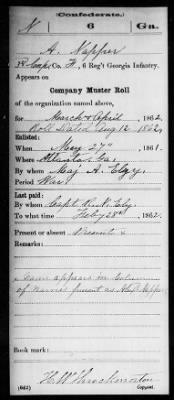 (Confederate.)
N 6 Ga.
A. Napper
Co. H, 6 Reg't Georgia Infantry.
Appears on
Company Muster Roll
of the organization named above,
for March & April, 1862.
Roll dated Aug 12, 1862
Enlisted:
When May 27", 1861.
Where Atlanta Ga.
By whom Maj A.
Period War
Last paid:
By whom Capt.
To what time Feby 28", 1862.
Present or absent Present
Remarks:
Name appears in column
of names present as Napper
Book mark:
(642) Copyist.